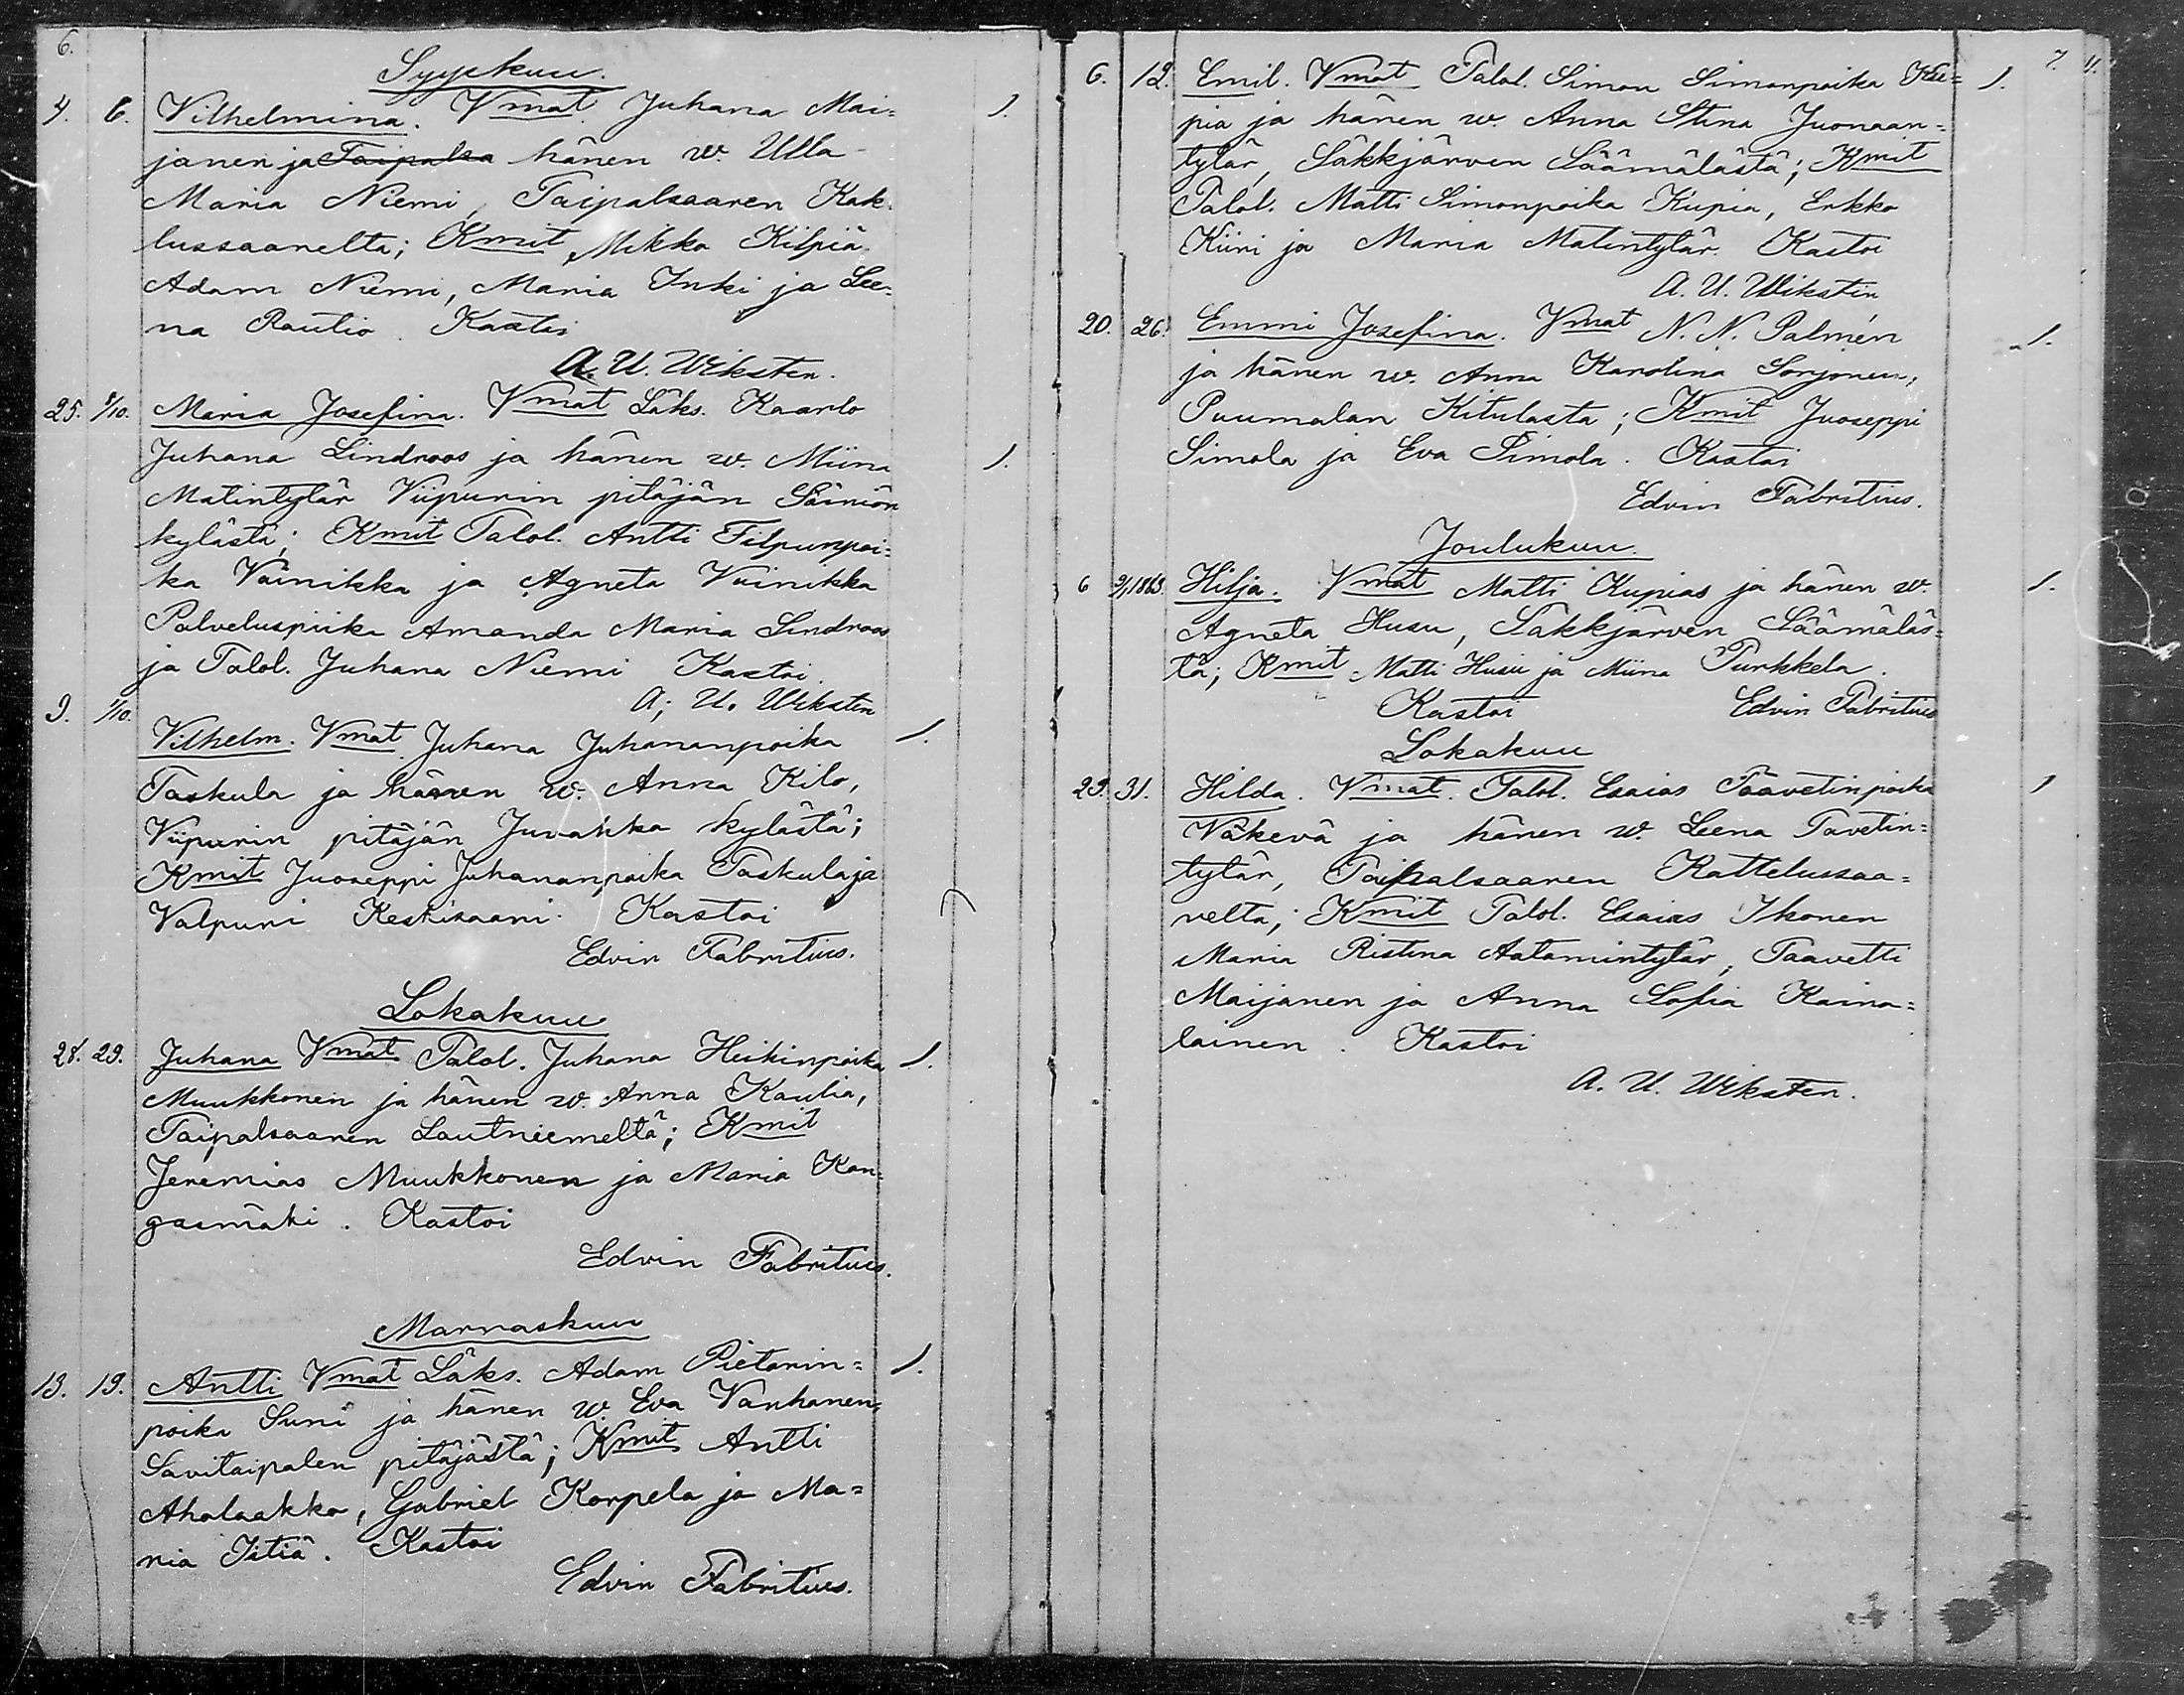 6.
Syyskuu.
4. 6. Vilhelmina. Vmat. Juhana Mai=
janen ja Taipalsa hänen w. Ulla
Maria Niemi, Taipalsaaren Kak-
lussaarelta; Kmit Mikko Kilpiä
Adam Niemi, Maria Inki ja Lee=
na Rautio. Kastoi
A. U. Wiksten.
1.
25. 8/10. Maria Josefina. Vmat Läks. Kaarlo
Juhana Lindroos ja hänen w. Miina
1.
Matintytär Viipurin pitäjän Säiniön
kylästä; Kmit Talol. Antti Filpunpoi=
ka Vainikka ja Agneta Vainikka
Palveluspiika Amanda Maria Lindroos
ja Talol. Juhana Niemi Kastoi.
A. U. Wiksten
9. 1/10.
Vilhelm. Vmat Juhana Juhananpoika
1.
Taskula ja hänen w. Anna Kilo,
Viipurin pitäjän Juvakka kylästä;
Kmit Juoseppi Juhananpoika Taskula ja
Valpuri Keskisaari. Kastoi
Edvin Fabritius.
Lokakuu
28. 29. Juhana Vmat Talol. Juhana Heikinpoika
1.
Muukkonen ja hänen w. Anna Kaulia,
Taipalsaaren Lautniemeltä; Kmit
Jeremias Muukkonen ja Maria Kan=
gasmäki. Kastoi
Edvin Fabritius.
Marraskuu
13. 19. Antti Vmat Läks. Adam Pietarin=
1.
poika Suni ja hänen w Eva Vanhanen,
Savitaipalen pitäjästä; Kmit Antti
Aholaakko, Gabriel Korpela ja Ma=
ria Istiä. Kastoi
Edvin Fabritius.
7.
6. 12. Emil. Vmat Talol. Simon Simonpoika Ku=
1.
pia ja hänen w. Anna Stina Juonaan=
tytär, Säkkjärven Säämälästä; Kmit
Talol. Matti Simonpoika Kupia, Erkko
Kiiri ja Maria Matintytär. Kastoi
A. U. Wikstén
20. 26. Emmi Josefina. Vmat N. N. Palmén
1.
ja hänen w. Anna Karolina Sorjonen,
Puumalan Kitulasta; Kmit Juoseppi
Simola ja Eva Simola. Kastoi
Edvin Fabritius.
Joulukuu.
6 9/1 1863. Hilja. Vmat Matti Kupias ja hänen w.
1.
Agneta Husu, Säkkjärven Säämäläs=
tä; Kmit Matti Husu ja Miina Purkkela.
Kastoi Edvin Fabritius
Lokakuu
29. 31. Hilda. Vmat. Talol. Esaias Taavetinpoika
1
Väkevä ja hänen w. Leena Tavetin=
tytär, Taipalsaaren Rattelussaa=
relta; Kmit Talol. Esaias Ikonen
Maria Ristina Aatamintytär, Taavetti
Maijanen ja Anna Sofia Kaina=
lainen. Kastoi
A. U. Wiksten.